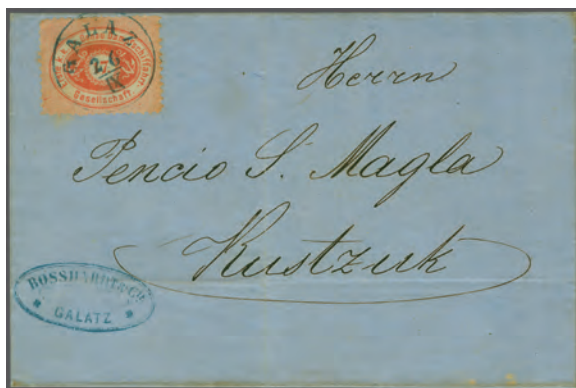 GALAZ
26
IX
Gesellschaft
Herrn
Pencio S. Magla
Rustzuk
BOSSHARDT & Co
GALATZ